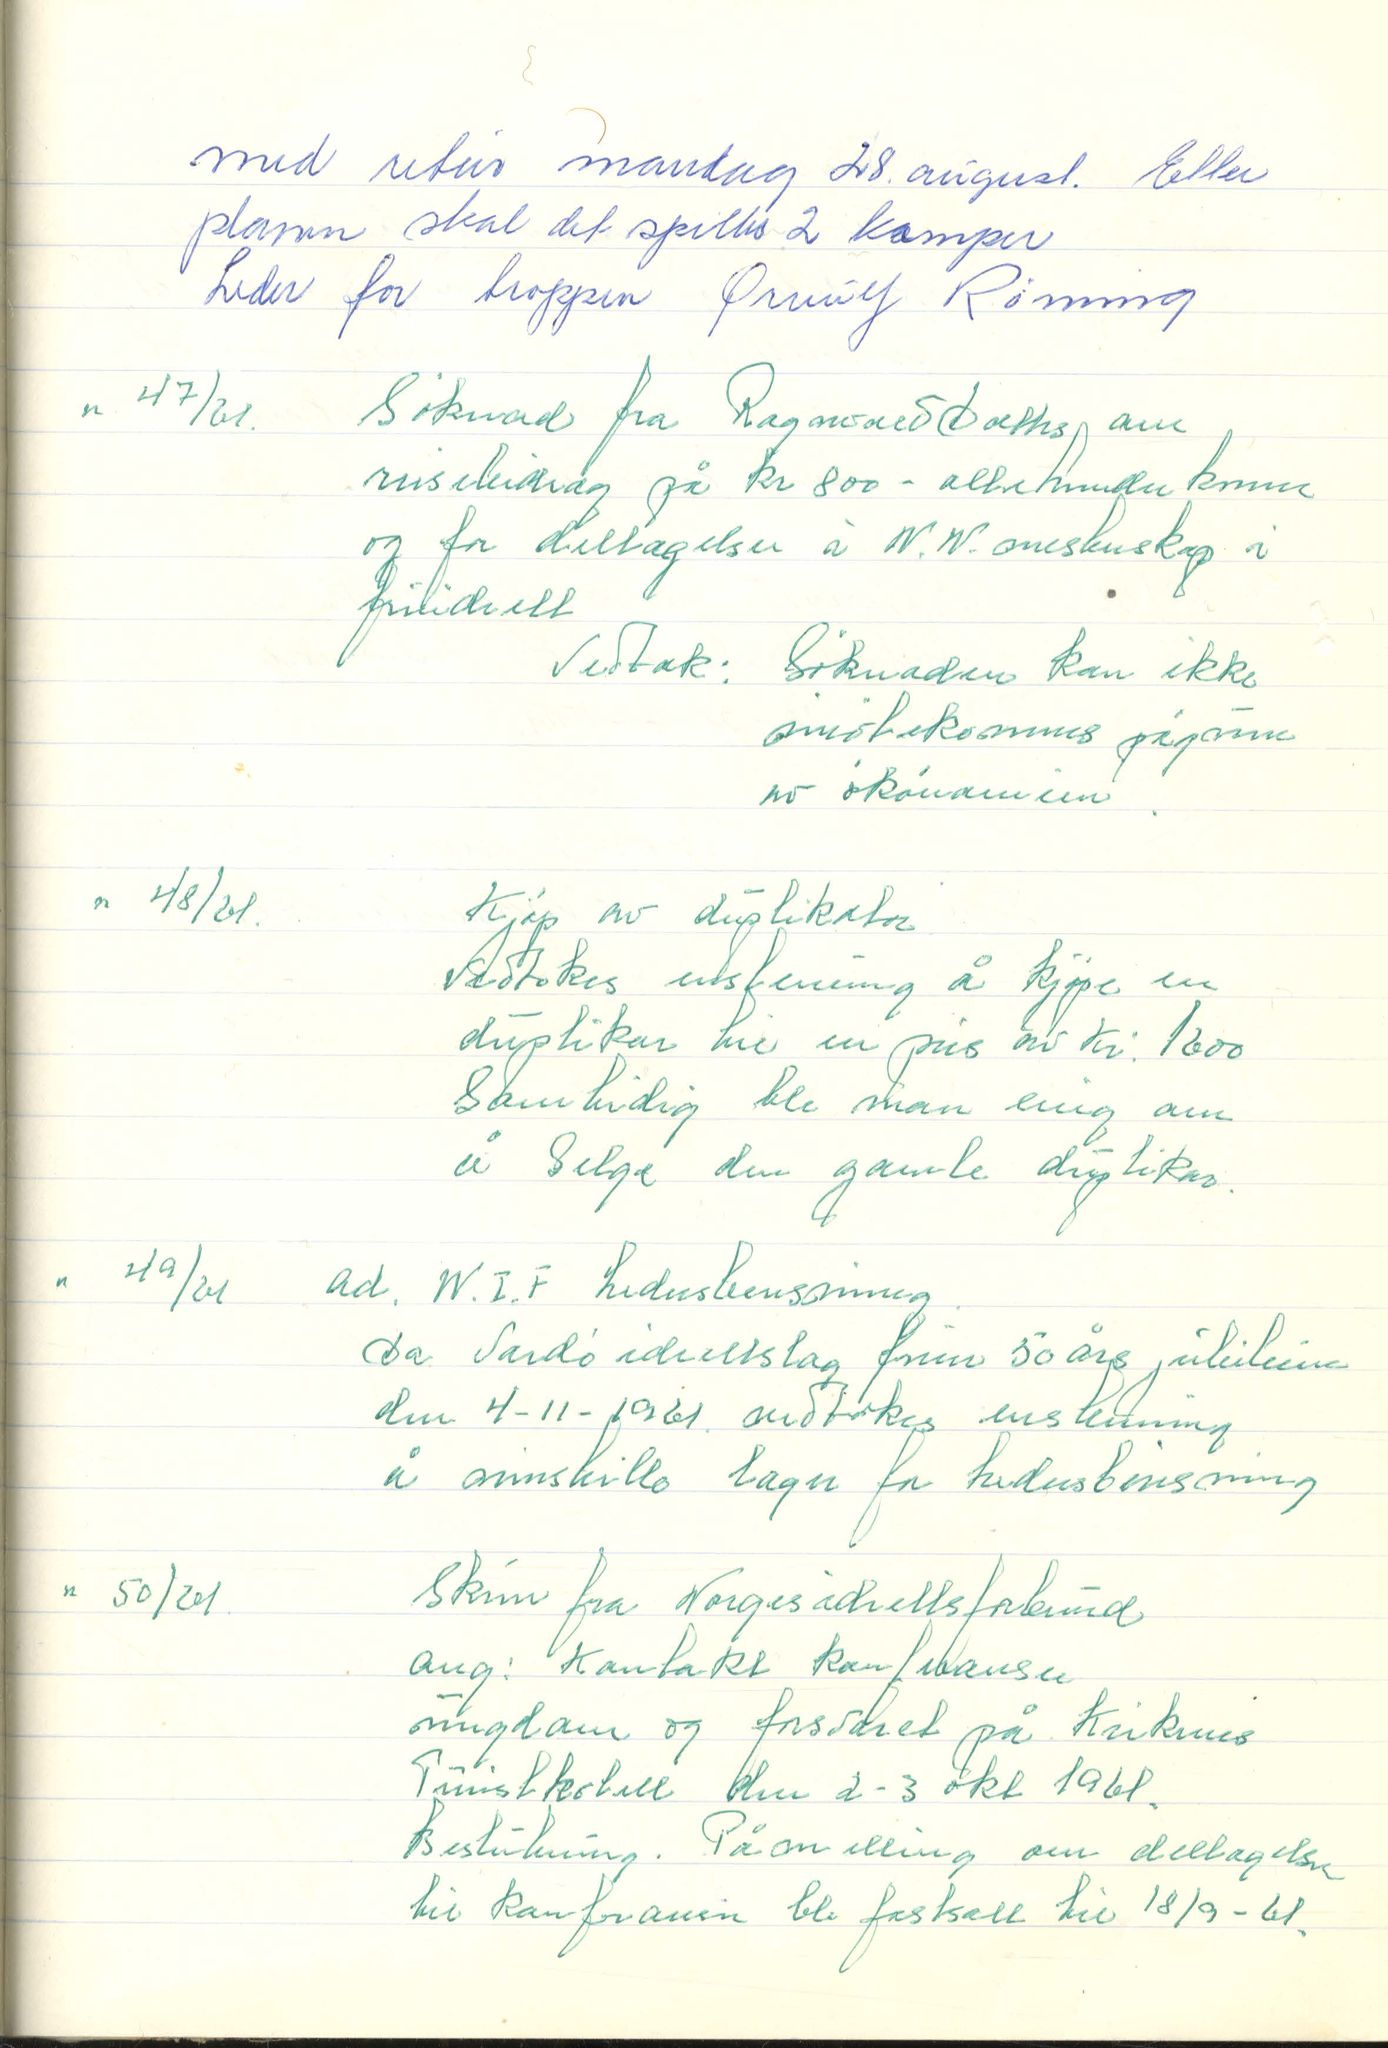 med retur mandag 28. august. Etter
planen skal det spilles 2 kamper
Leder for troppen Ørnulf Röning
" 47/61. Söknad fra Ragnvald Dahls, om
reisebidrag på kr 800 - ottehundre kroner
og for deltagelse i N.N. mesterskap i
friidrett
Vedtak: Söknaden kan ikke
imötekommes på grunn
av ökonomien.
" 48/61. Kjöp av duplikator
Vedtokes enstemmig å kjöpe en
duplikator til en pris av kr. 1200
Samtidig ble man enig om
å Selge den gamle duplikator.
" 49/61 ad. N.I.F Lederutvekslinng.
Da Vardö idrettslag feirer 50 års jubileum
den 4-11-1961. vedtokes enstemmig
å innstille lager for
" 50/61. Skriv fra Norges idrettsforbund
ang: Kontakt konferanse
ungdom og forsvaret på Kirkenes
Turisthotell den 2-3 okt 1961.
Beslutning. Påmelding om deltagelse
til konferansen ble fastsatt til 18/9-61.